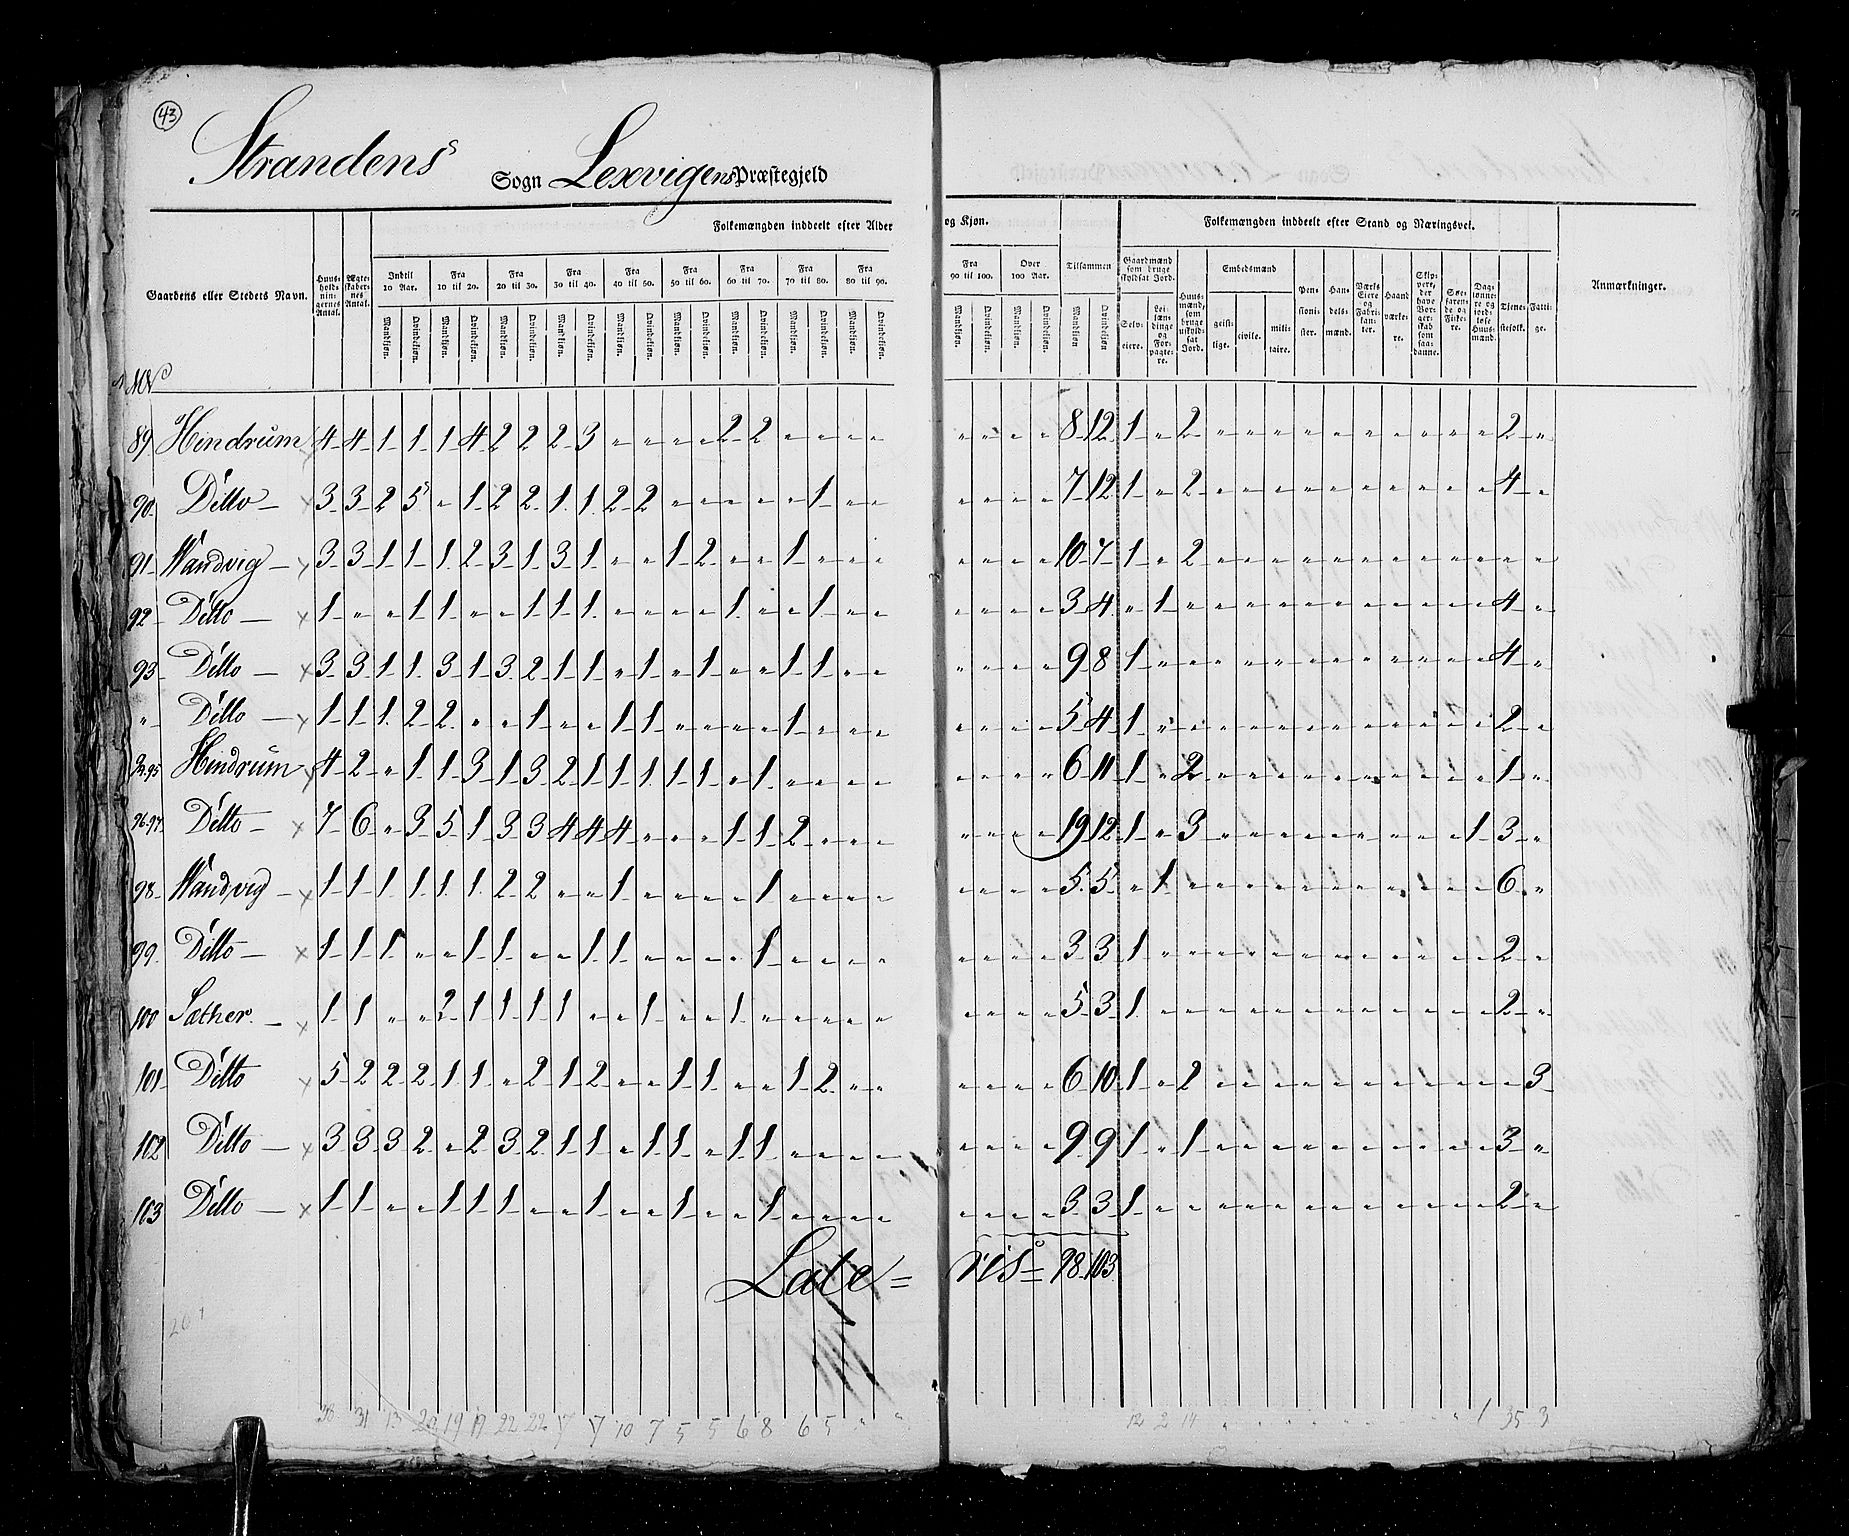 43
Strandens Sogn Lexvigens Præstegjeld
Gaardens eller Stedets Navn. Huusholdningernes Antal. Ægteskabernes Antal. Folkemængden inddeelt efter Alder og Kjøn. Tilsammen Folkemængden inddeelt efter Stand og Næringsvei. Anmærkninger.
Indtil 10 Aar. Fra 10 til 20. Fra 20 til 30. Fra 30 til 40. Fra 40 til 50. Fra 50 til 60. Fra 60 til 70. Fra 70 til 80. Fra 80 til 90. Fra 90 til 100. Over 100 Aar.
Gaardmænd som bruge skyldsat Jord. Huusmænd, som bruge uskyldsat Jord. Embedsmænd Pensionister. Handelsmænd. Værks Eiere og Fabrikanter. Haandværkere. Skippere, der have Borgerskab som saadanne. Søefarende og Fiskere. Daglønnere og jordløse Huusmænd. Tjenestefolk. Fattige.
Mandkjøn. Qvindekjøn. Selveiere. Leilændinge og Forpagtere. geistlige. civile. militaire.
No
89 Hindrum 4 4 1 1 1 4 2 2 2 3 " " " " 2 2 " " " " " " " " 8 12 1 " 2 " " " " " " " " " " 2 "
90 Ditto 3 3 2 5 " 1 2 2 1 1 2 2 " " " " " 1 " " " " " " 7 12 1 " 2 " " " " " " " " " " 4 "
91 Wandvig 3 3 1 1 1 2 3 1 3 1 " " 1 2 " " 1 " " " " " " " 10 7 1 " 2 " " " " " " " " " " " "
92 Ditto 1 " " 1 1 " " 1 1 1 " " " " 1 " " 1 " " " " " " 3 4 " 1 " " " " " " " " " " " 4 "
93 Ditto 3 3 1 1 3 1 3 2 1 1 " 1 " 1 " " 1 1 " " " " " " 9 8 1 " " " " " " " " " " " " 4 "
" Ditto 1 1 1 2 2 " " 1 " " 1 1 " " " " 1 " " " " " " " 5 4 1 " " " " " " " " " " " " 2 "
94.95 Hindrum 4 2 " 1 1 3 1 3 2 1 1 1 1 1 " 1 " " " " " " " " 6 11 1 " 2 " " " " " " " " " " 1 "
96.97 Ditto 7 6 " 3 5 1 3 3 4 4 4 " " " 1 1 2 " " " " " " " 19 12 1 " 3 " " " " " " " " " 1 3 "
98 Wandvig 1 1 1 1 1 1 2 2 " " 1 " " " " 1 " " " " " " " " 5 5 " 1 " " " " " " " " " " " 6 "
99 Ditto 1 1 1 " " 1 1 " " 1 1 " " " " 1 " " " " " " " " 3 3 1 " " " " " " " " " " " " 2 "
100 Sæther 1 1 " " 2 1 1 1 1 " " 1 " " 1 " " " " " " " " " 5 3 1 " " " " " " " " " " " " 2 "
101 Ditto 5 2 2 2 1 1 " 2 1 2 " " 1 1 " " 1 2 " " " " " " 6 10 1 " 2 " " " " " " " " " " " 3
102 Ditto 3 3 3 2 " 2 3 2 1 1 " 1 1 " 1 1 " " " " " " " " 9 9 1 " 1 " " " " " " " " " " 3 "
103 Ditto 1 1 " " 1 1 1 " " 1 " " 1 " " 1 " " " " " " " " 3 3 1 " " " " " " " " " " " " 2 "
Late = ris = 98 103
201
38 31 13 20 19 19 22 22 10 7 5 5 6 8 6 5 " " 12 2 14 " " " 1 35 3